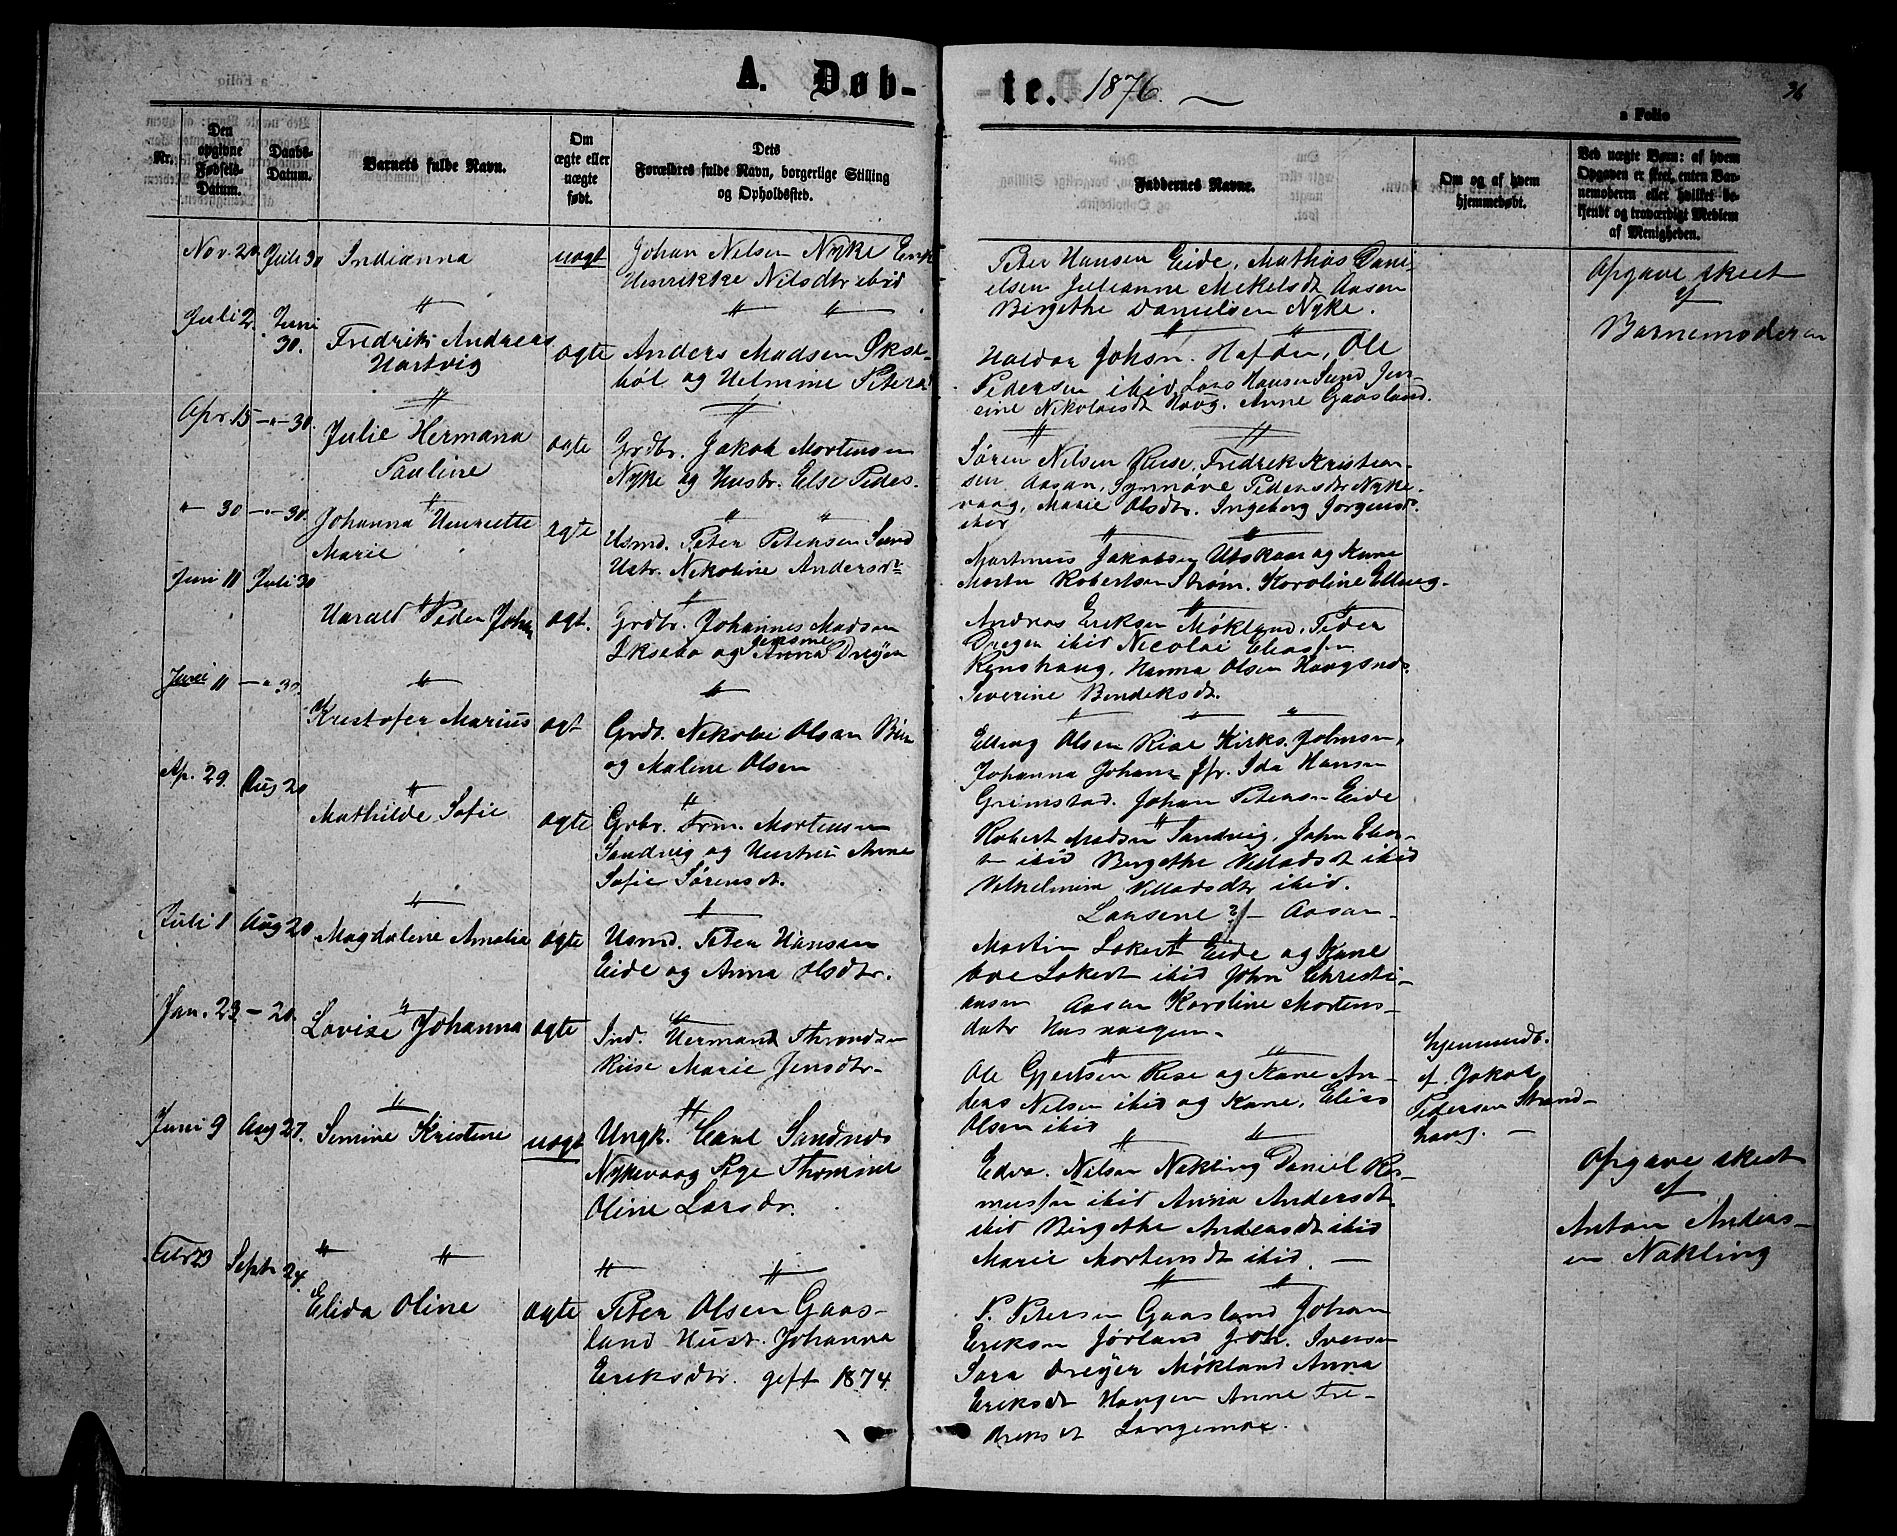 A. Døb-
-te. 1876.
36
a Folio
Nr.
Den opgivne Fødsels-Datum.
Daabs-Datum.
Barnets fulde Navn.
Om ægte eller uægte født.
Dets Forældres fulde Navn, borgerlige Stilling og Opholdssted.
Faddernes Navne.
Om og af hvem hjemmedøbt.
Ved uægte Børn: af hvem Opgaven er skeet, enten Barnemoderen eller hvilket bekjendt og troværdigt Medlem af Menigheden.
Nov. 20 Juli 30 Indianna uægt Johan Nilsen Nyke Enk
Henrikke Nilsdtr ibid
Peter Hansen Eide, Mathias Dani-
elsen Julianne Mekelsdt Aasen
Birgethe Danielsen Nyke.
Opgave skeet
af
Barnemoderen
Juli 2. Juni 30. Fredrik Andreas
Hartvig
ægte Anders Madsen Økse-
bøl og Helmine Peters
Haldor Johsn. Hafden, Ole
Pedersen ibid, Lars Hansen Sund Jen-
sine Nikolaisdt Houg. Anne Gaasland.
Apr 15 -"- 30. Julie Hermana
Pauline
ægte Grdbr. Jakob Mortensen
Nyke og Hustr. Else Peders.
Søren Nilsen Riise, Fredrik Kristian-
sen Aasan, Synnøve Pedersdtr Nyke-
vaag, Marie Olsdtr. Ingeborg Jørgensdt
ibid
" 30 -"- 30. Johanna Henriette
Marie
ægte Husmd. Peter Petersen Sund
Hstr. Nikoline Andersdtr
Martinus Jakobsen Utskaar og Kane
Martin Robertsen Strøm. Karoline Elling.
Juni 11 Juli 30 Harald Peder Johan ægt. Grdbr. Johannes Madsen
Øksebø og Jensine Anna Dreyer
Andreas Eriksen Møkland, Peder
Dreyer ibid Nicolai Eliassen
Hanna Olsen Haugsnes
Severine Bendiksdt.
Juni 11 -"- 30. Kristofer Marius ægt Grdb. Nikolai Olsen
og Malene Olsen
Elling Olsen Rise Kirks. Johnsen,
Johanna Johans Jfr. Ida Hansen
Grimstad. Johan Petersen Eide
Ap. 29 Aug 20 Mathilde Sofie ægte Grbr. Mortensen
Sandvig og Hustru Anne
Sofie Sørensdt.
Robert Madsen Sandvig, John Elias-
n ibid Birgethe Villadsdt ibid
Vilhelmina Villadsdtr ibid.
Larsene ?/- Aasan-
Juli 1 Aug 20 Magdalene Amalia ægte Husmd. Peter Hansen
Eide og Anna Olsdtr.
Martin Lokert Eide og Kane
Lokert ibid John Christi-
ansen Aasan Karoline Mortens-
datr
Jan. 23 - 20. Lovise Johanna ægte Ind. Hermand Throndsen
Riise Marie Jensdtr-
Ole Gjertsen Rise og Kane An-
ders Nilsen ibid og Kane, Elias
Olsen ibid
hjemmedb.
af Jakob
Pedersen Strand-
houg.
Juni 9 Aug 27. Semine Kristine uægt Ungk. Carl Sandnes
Nykevaag Pige Thomine
Oline Larsdr.
Edva. Nilsen Nakling Daniel Ras-
mussen ibid Anna Andersdt
ibid Birgethe Andersdt ibid
Marie Mortensdt ibid.
Opgave skeet
af
Anton Anders-
en Nakling
Febr 23 Septr 24. Elida Oline ægte Peter Olsen Gaas-
land Hust. Johanna
Eriksdtr. gift 1874
P. Petersen Gaasland Johan
Eriksen Jørland Joh. Iversen
Sara Dreyer Møkland Anna
Eriksdt Haugen Anne Fre-
driksdt Langemo